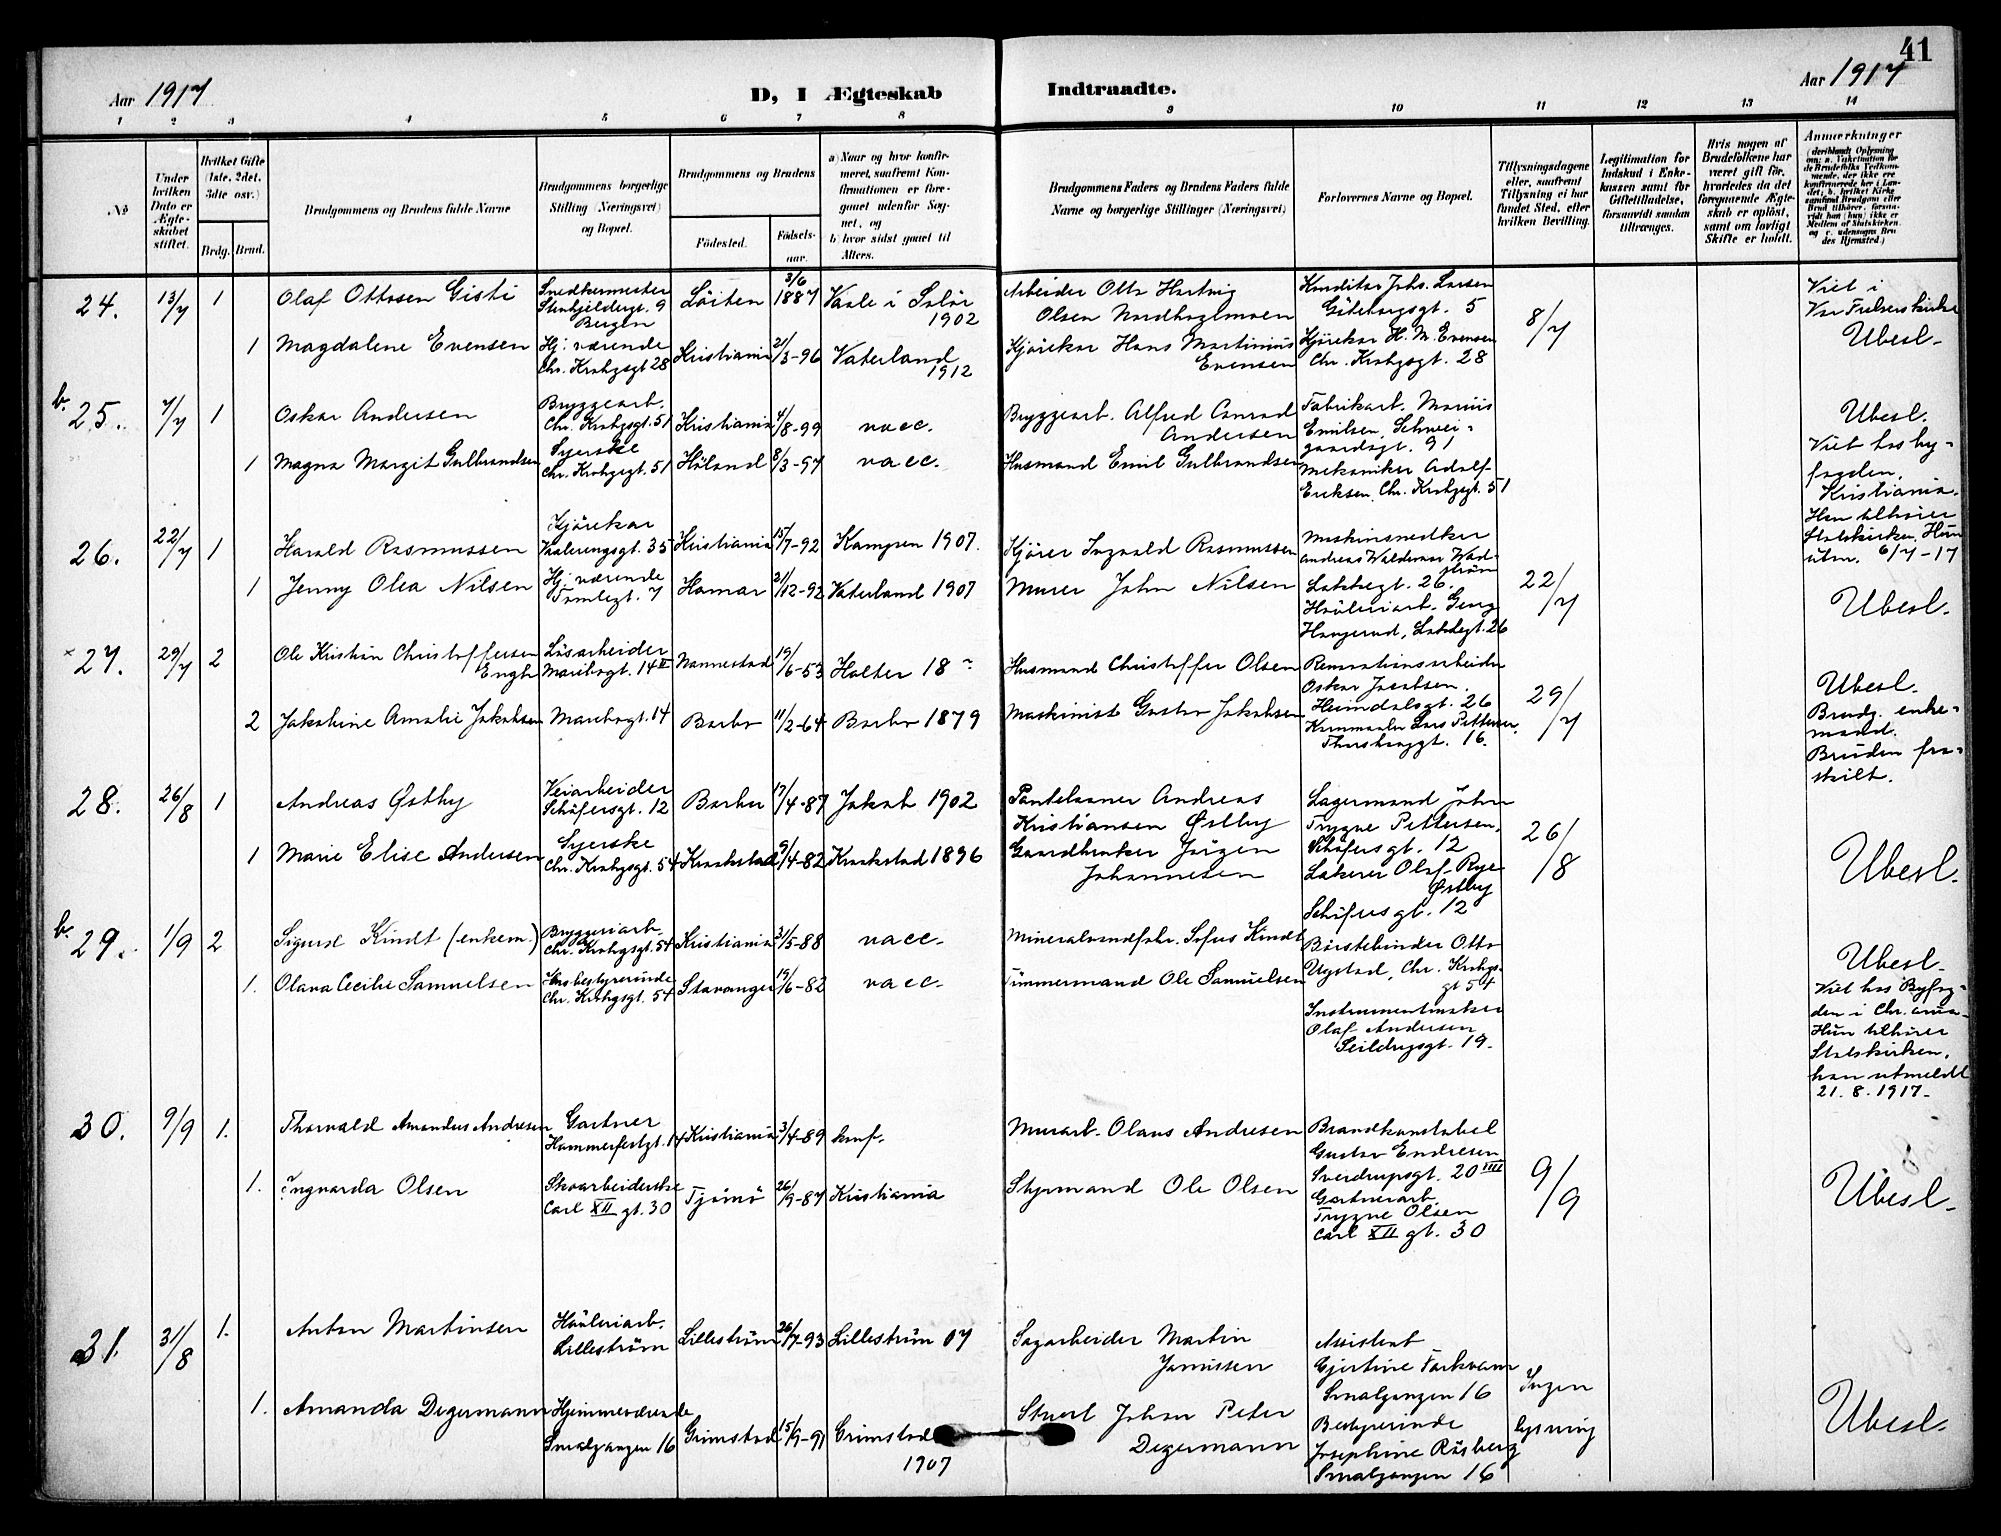 41
Aar 1917
D, I Ægteskab
Indtraadte.
Aar 1917
1 2 3 4 5 6 7 8 9 10 11 12 13 14
No
Under hvilken Dato er Ægteskabet stiftet.
Hvilket Gifte (1ste, 2det, 3dte osv.)
Brdg. Brud.
Brudgommens og Brudens fulde Navne
Brudgommens borgerlige Stilling (Næringsvei) og Bopæl.
Brudgommens og Brudens
Fødested.
Fødselsaar.
a) Naar og hvor konfirmeret, saafremt Konfirmationen er foregaaet udenfor Sognet, og
b) hvor sidst gaaet til Alters.
Brudgommens Faders og Brudens Faders fulde Navne og borgerlige Stillinger (Næringsvei)
Forlovernes Navne og Bopæl.
Tillysningsdagene eller, saafremt Tillysning ei har fundet Sted, efter hvilken Bevilling.
Legitimation for Indskud i Enkekassen samt for Giftetilladelse, forsaavidt saadan tiltrænges.
Hvis nogen af Brudefolkene har været gift før, hvorledes da det foregaaende Ægteskab er opløst, samt om lovligt Skifte er holdt.
Anmærkninger
(deriblandt Oplysning om: a. Vaksination for de Brudefolks Vedkommende, der ikke ere konfirmerede her i Landet; b. hvilket Kirkesamfund Brudgom eller Brud tilhører, forsaavidt han (hun) ikke er Medlem af Statskirken, og c. udensogns Brudes Hjemsted.)
24. 13/7 1 Olaf Ottosen Gisti
Snedkermester
Bergen
Löiten 3/6 1887
Vaale i Solör 1902
Arbeider Otto Hartvig
Olsen
Konditor Johs. Larsen
Göteborgsgt. 5
8/7
Viet i
Vor Frelsers kirke
Ubesl.
1 Magdalene Evensen
Hj. værende
Chr. Krohgsgt 28
Kristiania 21/3-96 Vaterland 1912
Kjörekar Hans Martinius
Evensen
Kjörekar H. M. Evensen
Chr. Krohgsgt. 28
b. 25. 7/7 1 Oskar Andersen
Bryggearb.
Chr. Krohgsgt. 51
Kristiania 4/8-99 vacc.
Bryggearb. Alfred Conrad
Andersen
Fabrikarb. Marius
Emilsen, Schweigaardsgt. 91
Ubesl.
Viet hos byfogden,
Kristiania.
1 Magna Margit Gulbrandsen
Syerske
Chr. Krohgsgt. 51
Höland 8/3-97 vacc.
Husmand Emil Gulbrandsen
Mekaniker Adolf
Eriksen, Chr. Krohgsgt. 51
Han tilhører
Statskirken, Hun
utm. 6/7-17
26. 22/7 1 Harald Rasmussen
Kjörekar
Vaalerengsgt. 35
Kristiania 15/7-92 Kampen 1907.
Kjörer Ingvald Rasmussen
Maskinsnedker
Andreas Waldemar Wadström
Lakkegt. 26.
22/7
Ubesl.
1 Jenny Olea Nilsen
Hj. værende
Tomtegt. 7
Hamar 21/12-92 Vaterland 1907
Murer John Nilsen
Høvleriarb. Georg
Haugerud, Lakkegt. 26
27. 29/7 2 Ole Kristian Christoffersen
Engh
Lösarbeider
Mariborgt. 14 II
Nannestad 19/6-53 Holter 18
Husmand Christoffer Olsen
Renovationsarbeider
Oskar Jacobsen.
Heimdalsgt. 26
29/7
Ubesl.
Brudg. enkemand.
Bruden fraskilt.
2 Jakobine Amalie Jakobsen
Mariborgt. 14
Barbo 11/2-64 Barbo 1879
Maskinist Gustav Jakobsen
Lars Pettersen,
Thorshauggt. 16.
28. 26/8 1 Andreas Østby
Veiarbeider
Schöfersgt. 12
Barbu 17/4-87 Jakob 1902
Pantelaaner Andreas
Kristiansen Østby
Lagermand John
Trygve Pettersen,
Schöfersgt. 12
26/8
Ubesl.
1 Marie Elise Andersen
Syerske
Chr. Krohgsgt. 54
Kraakstad 9/4-82 Kraakstad 1896
Gaardbruker Jörgen
Johannesen
Lakerer Olaf Rye
Østby
Schöfersgt. 12
b. 29. 1/9 2 Sigurd Kindt (enkem.)
Bryggeriarb.
Chr. Krohgsgt. 54
Kristiania 31/5-88 vacc.
Mineralvandfabr. Sofus Kindt
Börstebinder Otto
Ugstad, Chr. Krohgsgt 54
Ubesl.
Viet hos Byfogden i Chr.ania.
1. Olava Cecilie Samuelsen
Husbestyrerinde
Chr. Krohgsgt. 54
Stavanger 19/6-82 vacc.
Tömmermand Ole Samuelsen
Instrumentmaker
Olaf Andersen
Seildugsgt. 19.
Hun tilhører
Statskirken,
han utmeldt
21. 8. 1917.
30. 9/9 1. Thorvald Amandus Andresen
Gartner
Hammerfestgt. 14
Kristiania 3/4-89 konf.
Murarb. Olaus Andresen
Brandkonstabel
Gustav Endresen
Sverdrupsgt. 20 VIII
9/9
Ubesl.
1. Ingvarda Olsen
Skoarbeiderske
Carl XII gt. 30
Tjömö 26/9-87 Kristiania
Styrmand Ole Olsen
Gartnerarb.
Trygve Olsen
Carl XII gt. 30
31. 31/8 1. Anton Martinsen
Høvleriarb.
Lilleström
Lilleström 26/7-93 Lilleström 07
Sagarbeider Martin
Assistent
Gjertine Farkvam
Smalgangen 16
Ingen
lysning
Ubesl.
1. Amanda Degermann
Hjemmeværende
Smalgangen 16
Grimstad 15/9-91 Grimstad
1907
Stuert Johan Peter
Degermann
Bestyrerinde
Josephine Råsberg
Smalgangen 16